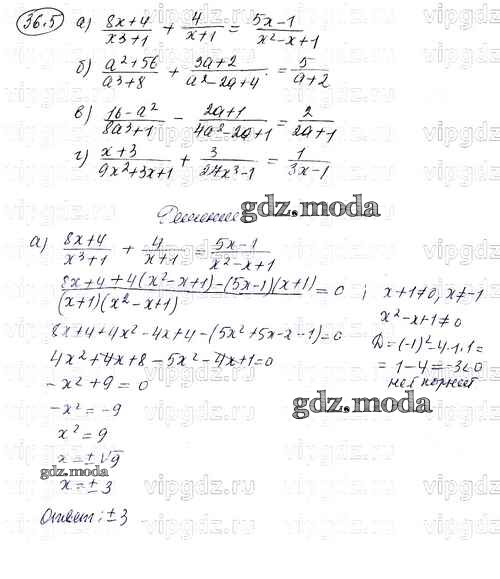 36.5 а) (8x+4)/(x3+1) + 4/(x+1) = (5x-1)/(x²-x+1)
б) (a²+56)/(a³+8) + (3a+2)/(a²-2a+4) = 5/(a+2)
в) (16-a²)/(8a³+1) - (2a+1)/(4a²-2a+1) = 2/(2a+1)
г) (x+3)/(9x²+3x+1) + 3/(27x³-1) = 1/(3x-1)
Решение
gdz.moda
а) (8x+4)/(x³+1) + 4/(x+1) = (5x-1)/(x²-x+1)
(8x+4+4(x²-x+1)-(5x-1)(x+1))/((x+1)(x²-x+1)) = 0 ; x+1≠0, x≠-1
x²-x+1≠0
8x+4+4x²-4x+4-(5x²+5x-x-1)=0
Д=(-1)²-4·1·1=
4x²+4x+8-5x²-4x+1=0
=1-4=-3<0
нет корней
-x²+9=0
-x²=-9
gdz.moda
x²=9
x=±√9
gdz.moda
x=±3
Ответ: ±3
vipgdz.ru